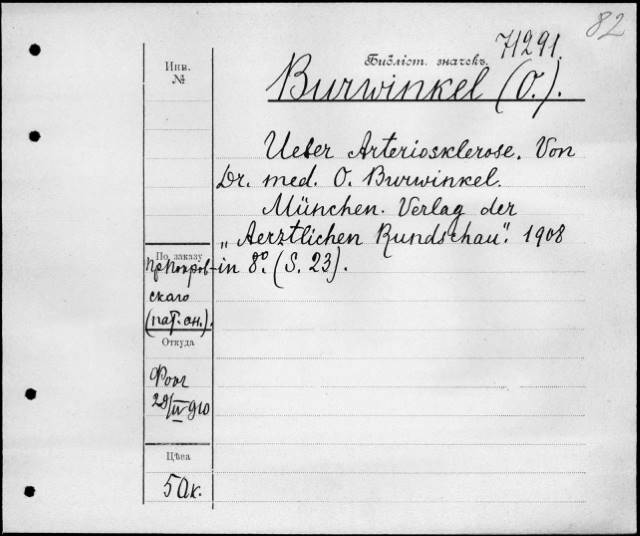 82
71291.
Инв.
№
Библіот. значекъ.
Burwinkel (O.).
Ueber Arteriosklerose. Von
Dr. med. O. Burwinkel.
München. Verlag der
„Aerztlichen Rundschau“. 1908
in 8°. (S. 23).
По заказу
Пр. Покров-
скаго
(пат. ан.).
Откуда
29/IV 910
Цѣна
50к.